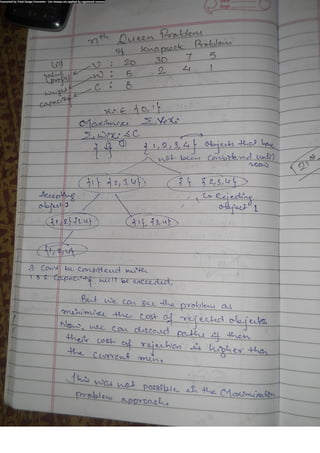 nth Queen Problem
Of Knapsack Problem
V: 20 30 7 5
value (profit)
W: 5 2 4 1
weight
C: 8
capacity
xi ∈ {0,1}
Maximize Σ Vixi
Σ Wixi ≤ C
{ } {1,2,3,4} objects that have
not been considered until
now
{1} {2,3,4} { } {2,3,4}
Accepting
object 1
Rejecting
object 1
{1,2} {3,4} {1}, {3,4}
{1,2,4}
3 can't be considered with
1 & 2 capacity will be exceeded.
But we can see the problem as
minimise the cost of rejected objects
Now, we can discard paths if then
their cost of rejection is higher than
the current min.
This was not possible in the Maximization
problem approach.